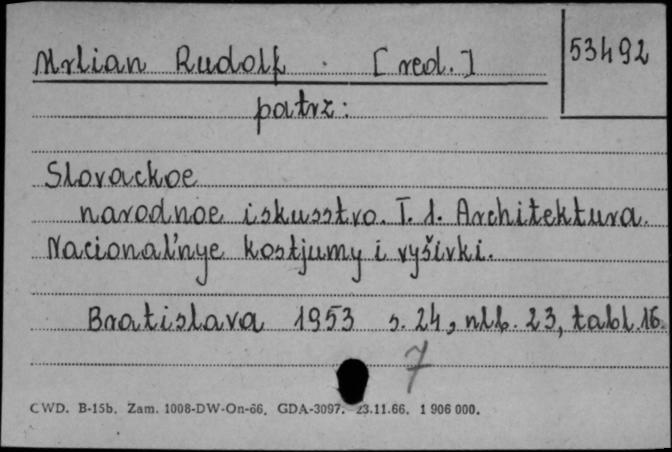 Mrlian Rudolf . [red.]
53492
patrz:
Slovackoe
narodnoe iskusstvo. T. 1. Architektura.
Nacional'nye kostjumy i vyšivki.
Bratislava 1953 s. 24, nlb. 23, tabl. 16.
7
CWD. B-15b. Zam. 1008-DW-On-66. GDA-3097. 23.11.66. 1 906 000.